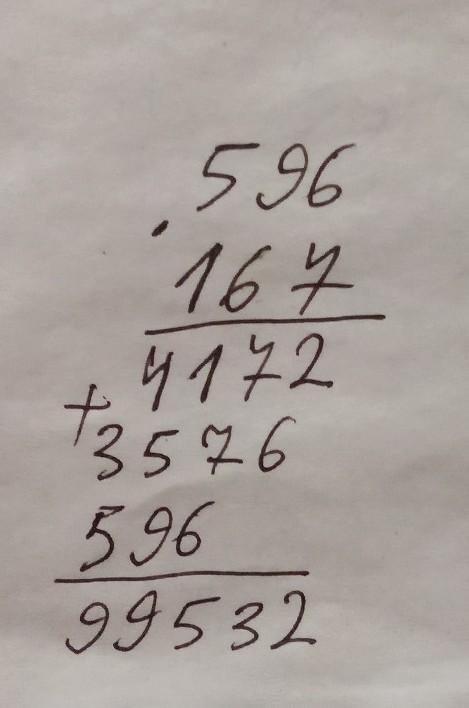 596
·
167
4172
+
3576
596
99532